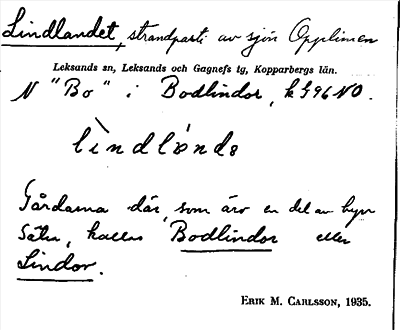 Lindlandet, strandparti av sjön Opplimen
Leksands sn, Leksands och Gagnefs tg, Kopparbergs län.
N "Bo" i Bodlindor, k G96 NO.
lìndlands
Gårdarna där, som äro en del av byn
Säter, kallas Bodlindor eller
Lindor.
ERIK M. CARLSSON, 1935.